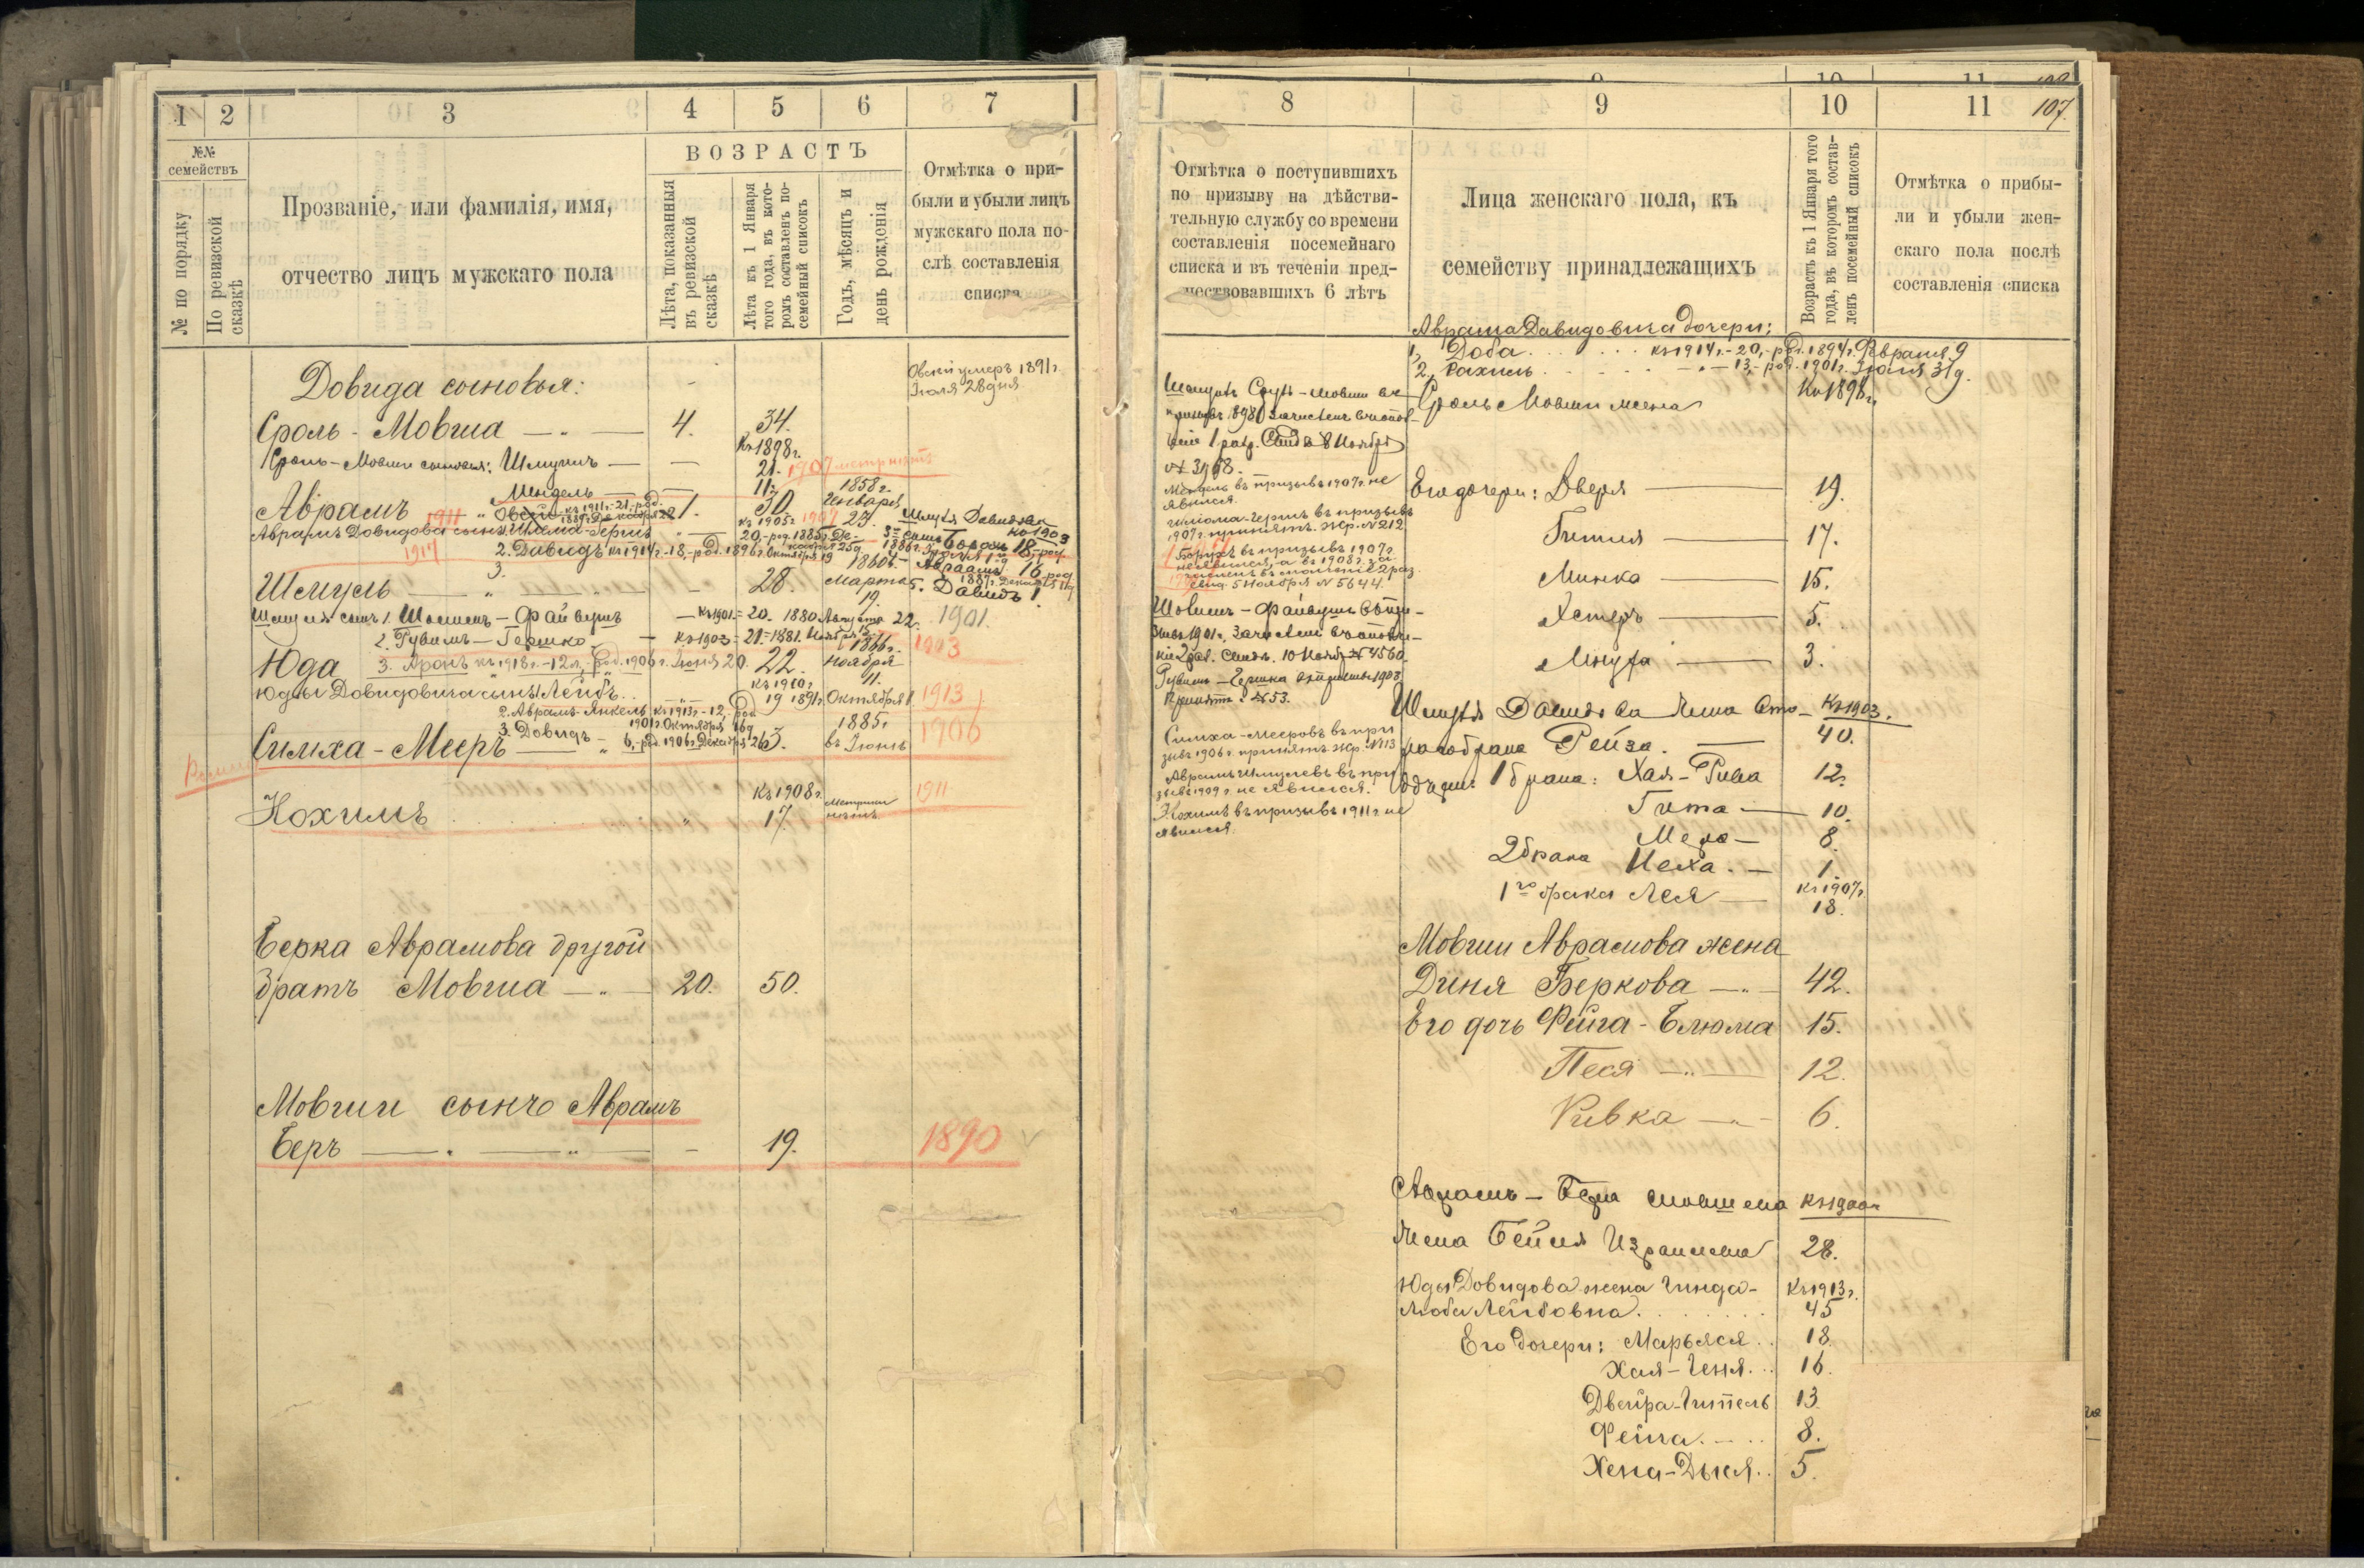 1 2 3 4 5 6 7
№№ семействъ
№ по порядку
По ревизской сказкѣ
Прозваніе, или фамилія, имя,
отчество лицъ мужскаго пола
ВОЗРАСТЪ
Лѣта, показанныя въ ревизской сказкѣ
Лѣта къ 1 Января того года, въ кото-ромъ составленъ по-семейный списокъ
Годъ, мѣсяцъ и день рожденія
Отмѣтка о при-
были и убыли лицъ
мужскаго пола по-
слѣ составленія
списка
Довида сыновья: -
Овсей умеръ 1891 г.
Іюля 28 дня
Сроль - Мовша — 4. 34.
Къ 1898 г.
Сроль-Мовши сыновья: Шмуиль — — 21. 1907
Мендель — — 11.
Аврамъ 1. 30. 1858 г. Января 23.
1911 Овсей къ 1911 г.-21,-род. 1889 г. Декабря 22
Аврамъ Довидова сынъ Шлома-Герцъ къ 1905 г. 20,-род. 1885 г. Де-
кабря 25 д.
1917 2. Давидъ къ 1914 г.-18,-род. 1896 г. Октября 19
3.
Шмуля Давидова къ 1903
3й сынъ Борохъ 18,-род.
1886 г.
4. Авраамъ 16 род.
1887 г. Декабря
5. Давидъ 1.
Шмуель — 28. 1860 г. Марта 19.
Шмуля сынъ 1. Шоломъ - Файвушъ — къ 1901.= 20. 1880 Августа 22. 1901.
2. Рувимъ - Гершко — къ 1903 = 21 = 1881. Ноября 15 1903
3. Аронъ къ 1918 г.-12 л,-род. 1906 г. Іюня 20.
Юда 22. 1866 г. Ноября 11.
Юды Довидовича сынъ Лейбъ къ 1910 г. 19 1891 г. Октября 1 1913
2. Аврамъ-Янкель къ 1913 г.-12,-род.
1901 г. Октября 16 д
3. Довидъ - 6,-род. 1906 г. Декабря 26
Симха - Мееръ — 3. 1885 г. въ Іюнѣ 1906
Нохимъ къ 1908 г. 17. Метрики нѣтъ 1911
Берка Аврамова другой
братъ Мовша — 20. 50.
Мовши сынъ Аврамъ
Беръ — - 19. 1890
8 9 10 11 107.
Отмѣтка о поступившихъ
по призыву на дѣйстви-
тельную службу со времени
составленія посемейнаго
списка и въ теченіи пред-
шествовавшихъ 6 лѣтъ
Лица женскаго пола, къ
семейству принадлежащихъ
Возрастъ къ 1 Января того года, въ которомъ состав-ленъ посемейный списокъ
Отмѣтка о прибы-
ли и убыли жен-
скаго пола послѣ
составленія списка
Аврама Давидовича дочери:
1, Доба къ 1914 г.-20,-род. 1894 г. Февраля 9
2, Рахиль — 13,-род. 1901 г. Іюля 31 д.
Сроль Мовши жена Къ 1898 г.
Его дочери: Двера — 19.
Гитля — 17.
Минка — 15.
Хестеръ — 5.
Мнуха — 3.
Мендель въ призывъ 1907 г. не
явился.
Шлома-Герцъ въ призывъ
1907 г. принятъ. Жр. №212
Борухъ въ призывъ 1907 г.
не явился, а въ 1908 г. за-
численъ въ ополченіе 2 раз.
свид. 5 Ноября №5644.
Шоломъ - Файвушъ въ при-
зывѣ 1901 г. зачисленъ въ ополче-
ніе 2 раз. свидѣт. 10 Ноября №4560.
Рувимъ - Гершка въ призывъ 1903
принятъ. №53.
Симха-Мееровъ въ при
зывъ 1906 г. принятъ Жр. №13
Аврамъ Шмулевъ въ при
зывѣ 1909 г. не явился.
Нохимъ въ призывъ 1911 г. не
явился.
Шмуля Давидова жена вто- Къ 1903.
раго брака Рейза. — 40.
1 брака: Хая-Рива 12.
Гита — 10.
Мера — 8.
2 брака Цеха. — 1.
1го брака Лея — къ 1907 г. 18.
Мовши Аврамова жена
Диня Беркова — 42.
Его дочь Фейга - Блюма 15.
Песя — 12.
Ривка — 6.
Аврамъ - Бера Мовшева Къ 1900 г
жена Бейля Израилева 28.
Юды Довидова жена Гинда- Къ 1913 г.
Люба Лейбовна. 45
Его дочери: Марьяся. 18.
Хая-Геня. 16.
Двейра-Гитель 13.
Фейга. 8.
Хена-Дыня. 5.